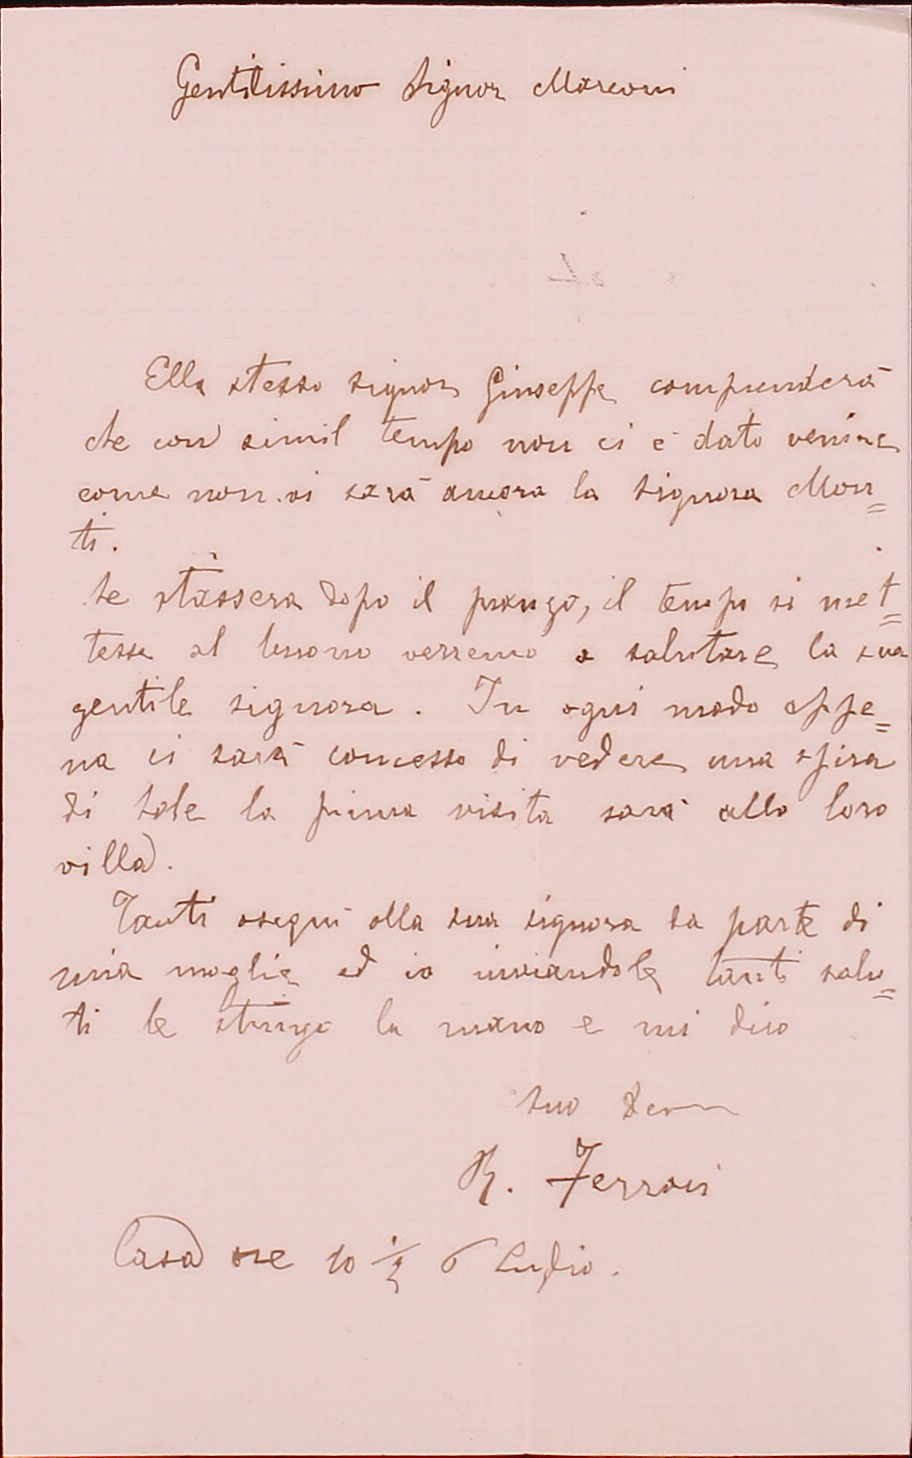 Gentilissimo Signor Marconi
Ella stesso signor Giuseppe comprenderà
che con simil tempo non ci è dato venire
come non vi sarà ancora la Signora Mon=
ti.
Se stassera dopo il pranzo, il tempo si met=
tesse al buono verremo a salutare la sua
gentile signora. In ogni modo appe=
na ci sarà concesso di vedere una spira
di sole la prima visita sarà alla loro
villa.
Tanti ossequi alla sua signora da parte di
mia moglie ed io inviandole tanti salu=
ti le stringo la mano e mi dico
Suo
R. Ferrari
Casa ore 10 1/2 6 Luglio.